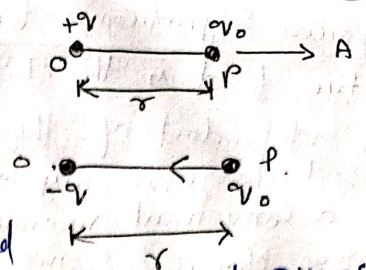 +q q₀
O P A
r
O P.
-q q₀
r